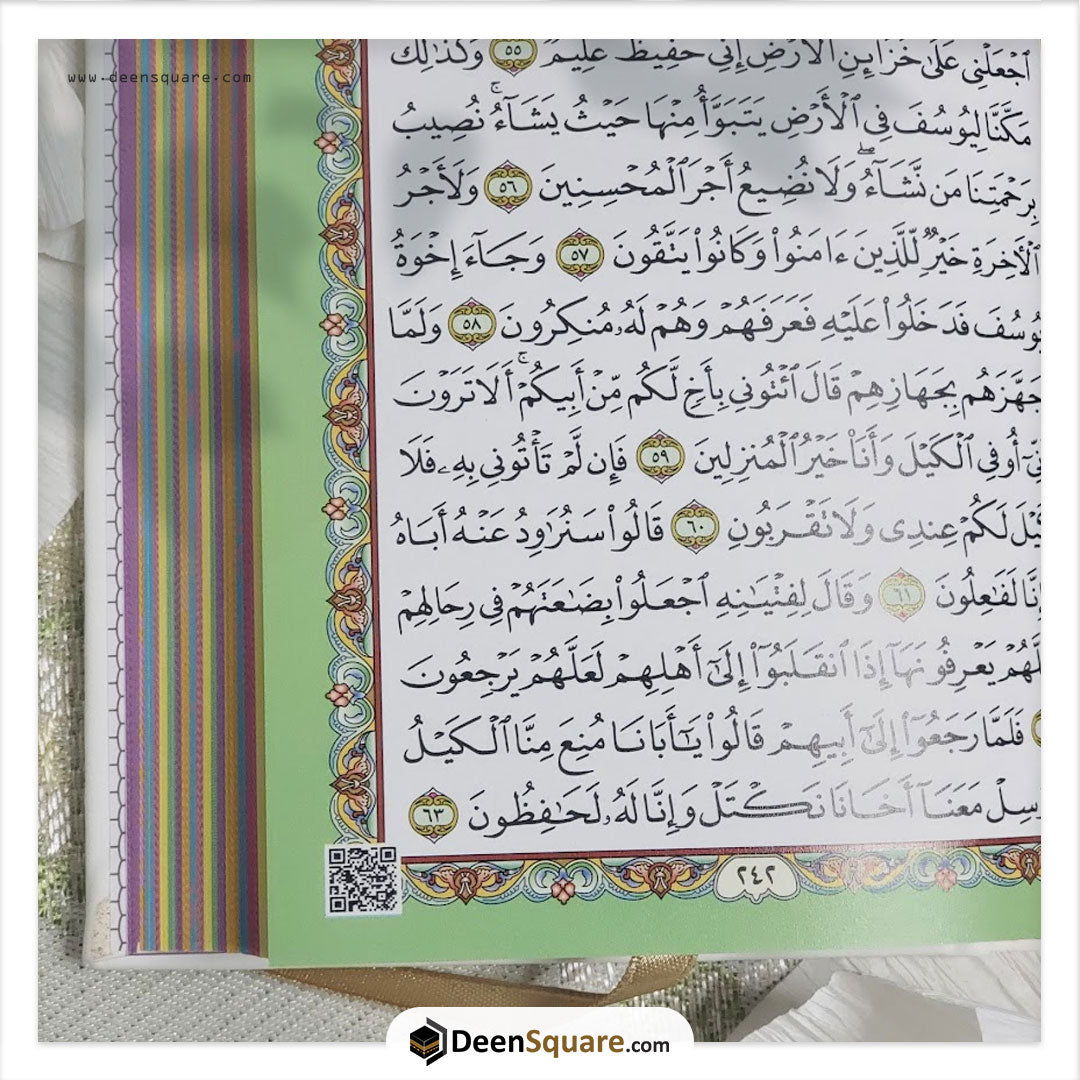 www.deensquare.com
ٱجْعَلْنِي عَلَىٰ خَزَآئِنِ ٱلْأَرْضِ إِنِّي حَفِيظٌ عَلِيمٌ ٥٥ وَكَذَٰلِكَ
مَكَّنَّا لِيُوسُفَ فِي ٱلْأَرْضِ يَتَبَوَّأُ مِنْهَا حَيْثُ يَشَآءُۚ نُصِيبُ
بِرَحْمَتِنَا مَن نَّشَآءُۖ وَلَا نُضِيعُ أَجْرَ ٱلْمُحْسِنِينَ ٥٦ وَلَأَجْرُ
ٱلْأٓخِرَةِ خَيْرٌ لِّلَّذِينَ ءَامَنُوا۟ وَكَانُوا۟ يَتَّقُونَ ٥٧ وَجَآءَ إِخْوَةُ
يُوسُفَ فَدَخَلُوا۟ عَلَيْهِ فَعَرَفَهُمْ وَهُمْ لَهُۥ مُنكِرُونَ ٥٨ وَلَمَّا
جَهَّزَهُم بِجَهَازِهِمْ قَالَ ٱئْتُونِي بِأَخٍ لَّكُم مِّنْ أَبِيكُمْۚ أَلَا تَرَوْنَ
نِّيٓ أُوفِي ٱلْكَيْلَ وَأَنَا۠ خَيْرُ ٱلْمُنزِلِينَ ٥٩ فَإِن لَّمْ تَأْتُونِي بِهِۦ فَلَا
كَيْلَ لَكُمْ عِندِي وَلَا تَقْرَبُونِ ٦٠ قَالُوا۟ سَنُرَٰوِدُ عَنْهُ أَبَاهُ
إِنَّا لَفَٰعِلُونَ ٦١ وَقَالَ لِفِتْيَٰنِهِ ٱجْعَلُوا۟ بِضَٰعَتَهُمْ فِي رِحَالِهِمْ
لَّهُمْ يَعْرِفُونَهَآ إِذَا ٱنقَلَبُوٓا۟ إِلَىٰٓ أَهْلِهِمْ لَعَلَّهُمْ يَرْجِعُونَ
فَلَمَّا رَجَعُوٓا۟ إِلَىٰٓ أَبِيهِمْ قَالُوا۟ يَٰٓأَبَانَا مُنِعَ مِنَّا ٱلْكَيْلُ
رْسِلْ مَعَنَآ أَخَانَا نَكْتَلْ وَإِنَّا لَهُۥ لَحَٰفِظُونَ ٦٣
٢٤٢
DeenSquare.com